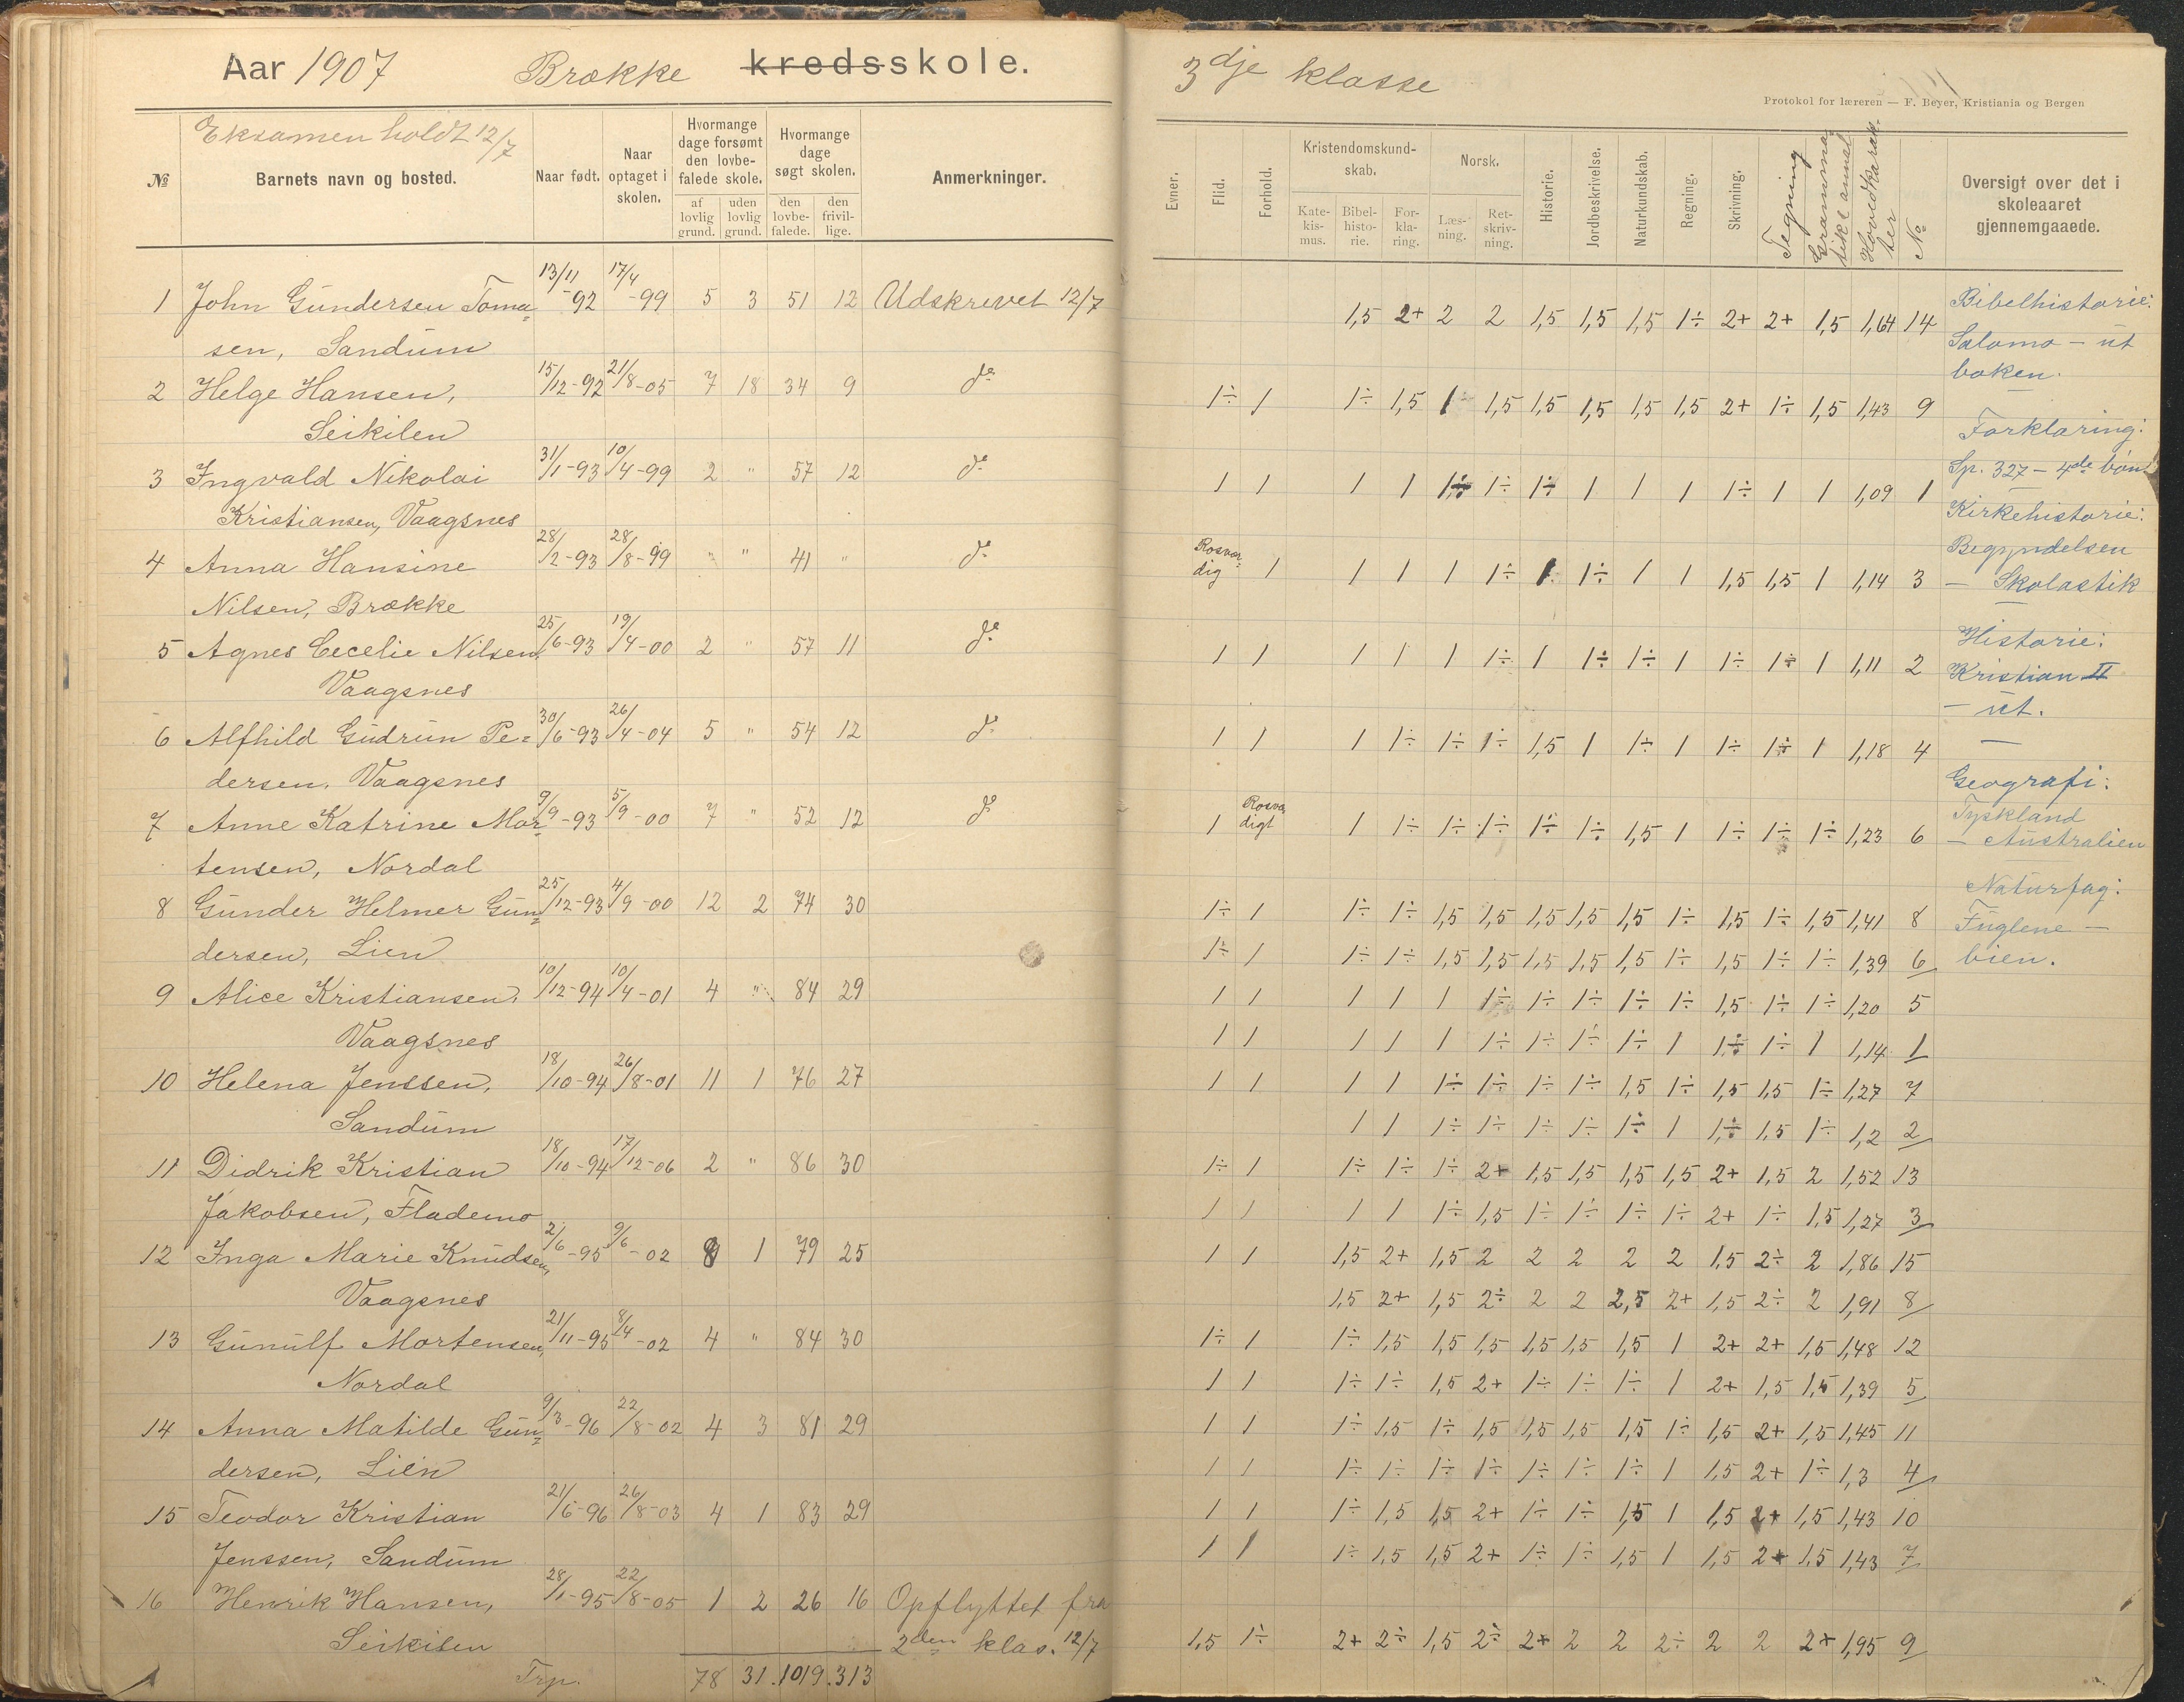 Aar 1907 Brække kredsskole.
Eksamen holdt 12/7
№ Barnets navn og bosted. Naar født. Naar optaget i skolen. Hvormange dage forsømt den lovbefalede skole. af lovlig grund. uden lovlig grund. Hvormange dage søgt skolen. den lovbefalede. den frivillige. Anmerkninger.
1 John Gundersen Toma= 13/11-92 17/4-99 5 3 51 12 Udskrevet 12/7
sen, Sandum
2 Helge Hansen, 15/12-92 21/8-05 7 18 34 9 do
Seikilen
3 Ingvald Nikolai 31/1-93 10/4-99 2 " 57 12 do
Kristiansen, Vaagsnes
4 Anna Hansine 28/2-93 28/8-99 " " 41 " do
Nilsen, Brække
5 Agnes Cecelie Nilsen, 25/6-93 19/4-00 2 " 57 11 do
Vaagsnes
6 Alfhild Gudrun Pe= 30/6-93 26/4-04 5 " 54 12 do
dersen, Vaagsnes
7 Anne Katrine Mor= 9/9-93 5/9-00 7 " 52 12 do
tensen, Nordal
8 Gunder Helmer Gun= 25/12-93 4/9-00 12 2 74 30
dersen, Lien
9 Alice Kristiansen, 10/12-94 10/4-01 4 " 84 29
Vaagsnes
10 Helena Jenssen, 18/10-94 26/8-01 11 1 76 27
Sandum
11 Didrik Kristian 18/10-94 17/12-06 2 " 86 30
Jakobsen, Flademo
12 Inga Marie Knudsen, 2/6-95 9/6-02 8 1 79 25
Vaagsnes
13 Gunulf Mortensen, 21/11-95 8/4-02 4 " 84 30
Nordal
14 Anna Matilde Gun= 9/3-96 22/8-02 4 3 81 29
dersen, Lien
15 Teodor Kristian 21/6-96 26/8-03 4 1 83 29
Jenssen, Sandum
16 Henrik Hansen, 28/1-95 22/8-05 1 2 26 16 Opflyttet fra
Seikilen 2den klas. 12/7
Trp. 78 31. 1019. 313
3dje klasse
Protokol for læreren — F. Beyer, Kristiania og Bergen
Evner. Flid. Forhold. Kristendomskundskab. Katekismus. Bibelhistorie. Forklaring. Norsk. Læsning. Retskrivning. Historie. Jordbeskrivelse. Naturkundskab. Regning. Skrivning. Tegning Hovedkarakter No Oversigt over det i skoleaaret gjennemgaaede.
1,5 2+ 2 2 1,5 1,5 1,5 1÷ 2+ 2+ 1,5 1,64 14
1÷ 1 1÷ 1,5 1 1,5 1,5 1,5 1,5 1,5 2+ 1÷ 1,5 1,43 9
1 1 1 1 1÷ 1÷ 1÷ 1 1 1 1÷ 1 1 1,09 1
Rosvær=dig 1 1 1 1 1÷ 1 1÷ 1 1 1,5 1,5 1 1,14 3
1 1 1 1 1 1÷ 1 1÷ 1÷ 1 1÷ 1÷ 1 1,11 2
1 1 1 1÷ 1÷ 1÷ 1,5 1 1÷ 1 1÷ 1÷ 1 1,18 4
1 Rosvædigt 1 1÷ 1÷ 1÷ 1÷ 1÷ 1,5 1 1÷ 1÷ 1÷ 1,23 6
1÷ 1 1÷ 1÷ 1,5 1,5 1,5 1,5 1,5 1÷ 1,5 1÷ 1,5 1,41 8
1÷ 1 1÷ 1÷ 1,5 1,5 1,5 1,5 1,5 1÷ 1,5 1÷ 1÷ 1,39 6
1 1 1 1 1 1÷ 1÷ 1÷ 1÷ 1÷ 1,5 1÷ 1÷ 1,20 5
1 1 1 1 1 1÷ 1÷ 1÷ 1÷ 1 1÷ 1÷ 1 1,14 1
1 1 1 1 1÷ 1÷ 1÷ 1÷ 1,5 1÷ 1,5 1,5 1÷ 1,27 7
1 1 1÷ 1÷ 1÷ 1÷ 1÷ 1 1÷ 1,5 1÷ 1,2 2
1÷ 1 1÷ 1÷ 1÷ 2+ 1,5 1,5 1,5 1,5 2+ 1,5 2 1,52 13
1 1 1 1 1÷ 1,5 1÷ 1÷ 1÷ 1÷ 2+ 1÷ 1,5 1,27 3
1 1 1,5 2+ 1,5 2 2 2 2 2 1,5 2÷ 2 1,86 15
1,5 2+ 1,5 2÷ 2 2 2,5 2+ 1,5 2÷ 2 1,91 8
1÷ 1 1÷ 1,5 1,5 1,5 1,5 1,5 1,5 1 2+ 2+ 1,5 1,48 12
1 1 1÷ 1÷ 1,5 2+ 1÷ 1÷ 1÷ 1 2+ 1,5 1,5 1,39 5
1 1 1÷ 1,5 1÷ 1,5 1,5 1,5 1,5 1÷ 1,5 2+ 1,5 1,45 11
1 1 1÷ 1÷ 1÷ 1÷ 1÷ 1÷ 1÷ 1 1,5 2+ 1÷ 1,3 4
1 1 1÷ 1,5 1,5 2+ 1÷ 1÷ 1,5 1 1,5 2+ 1,5 1,43 10
1 1 1÷ 1,5 1,5 2+ 1÷ 1÷ 1,5 1 1,5 2+ 1,5 1,43 7
1,5 1÷ 2+ 2÷ 1,5 2÷ 2+ 2 2 2÷ 2 2 2+ 1,95 9
Bibelhistorie:
Salomo – ut
boken.
Forklaring:
Sp. 327 – 4de bøn
Kirkehistorie:
Begyndelsen
– Skolastik
Historie:
Kristian II
– ut.
Geografi:
Tyskland
– Australien
Naturfag:
Fuglene –
bien.